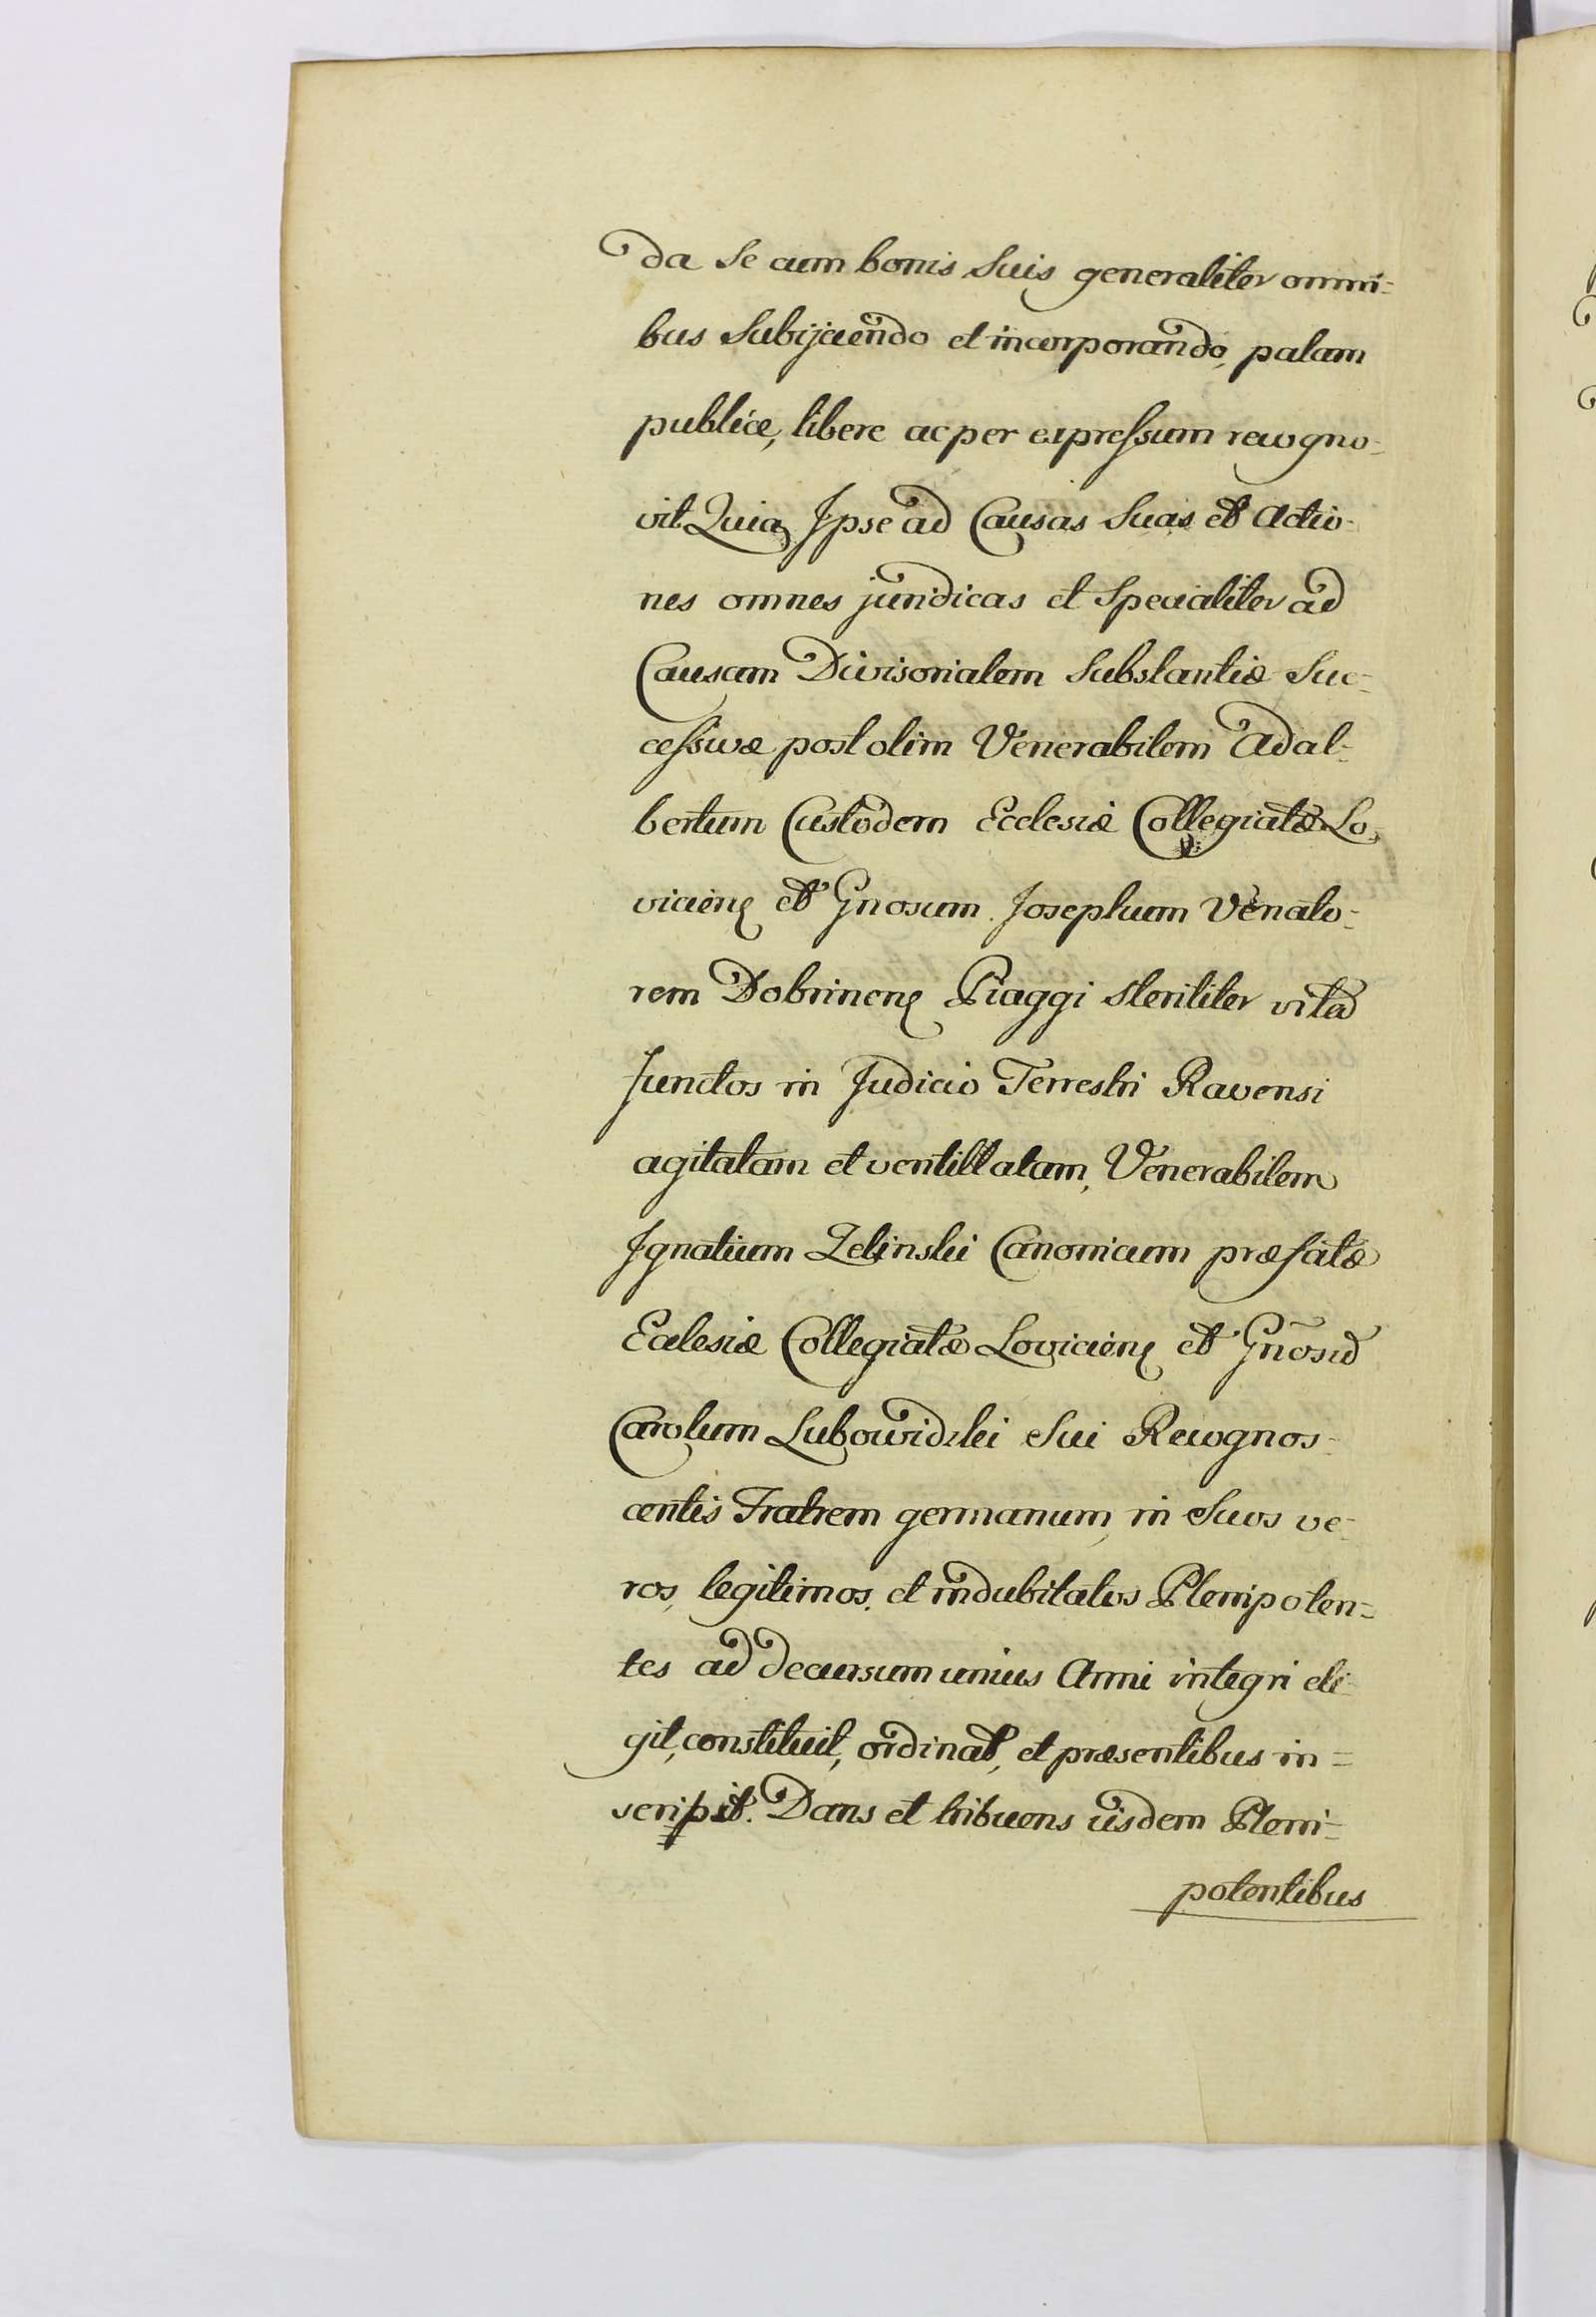 da se cum bonis suis generaliter omni=
bus subijciendo et incorporando, palam
publice, libere ac per expressum recogno=
vit Quia Ipse ad Causas suas et Actio=
nes omnes juridicas et specialiter ad
Causam Divisorialem substantiæ suc=
cessivæ post olim Venerabilem Adal=
bertum Custodem Ecclesiæ Collegiatæ Lo=
viciens et Gnosum Josephum Venato=
rem Dobrinens Piaggi steriliter vita
functos in Judicio Terrestri Ravensi
agitatam et ventillatam, Venerabilem
Ignatium Zelinski Canonicum præfatæ
Ecclesiæ Collegiatæ Loviciens et Gnosū
Carolum Lubowidzki sui Recognos=
centis Fratrem germanum, in suos ve=
ros, legitimos, et indubitatos Plenipoten=
tes ad decursum unius Anni integri eli=
git, constituit, ordinat, et præsentibus in=
scripsit. Dans et tribuens iisdem Pleni=
potentibus